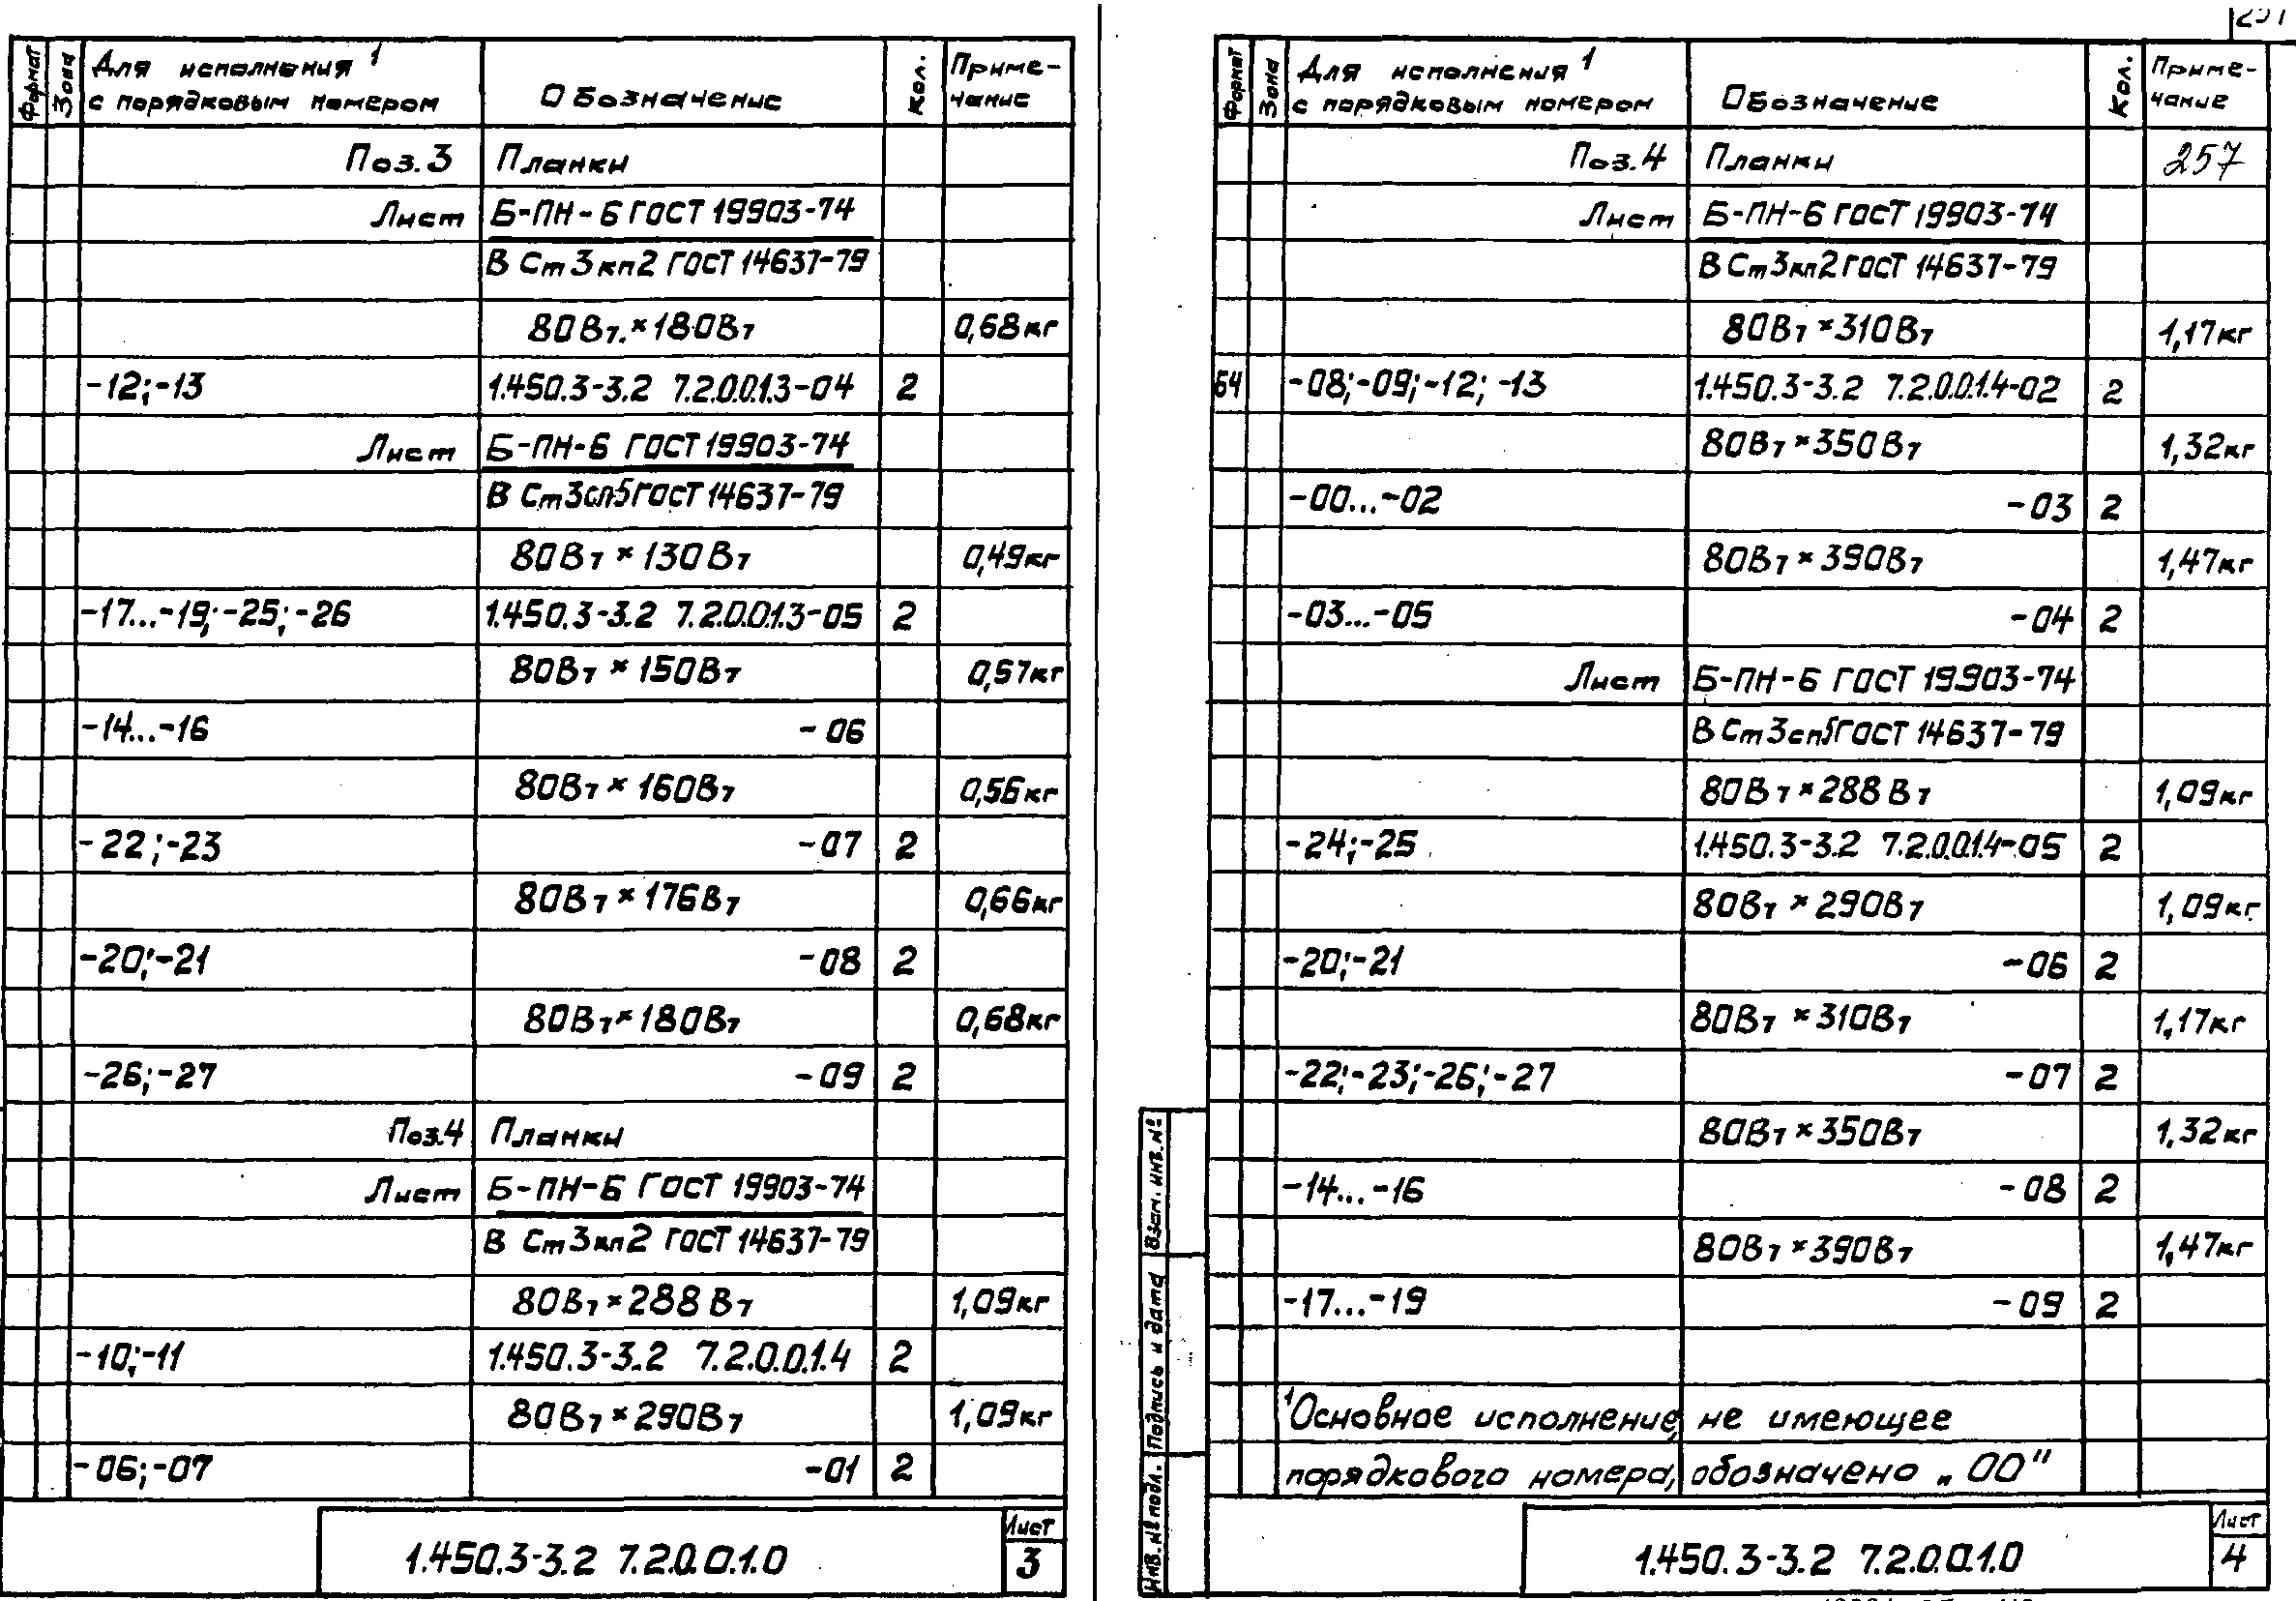 Формат Зона Для исполнения¹ с порядковым номером Обозначение Кол. Примечание
Поз.3 Планки
Лист Б-ПН-6 ГОСТ 19903-74
В Ст3кп2 ГОСТ 14637-79
80Вт.×180Вт 0,68кг
-12;-13 1.450.3-3.2 7.2.0.0.1.3-04 2
Лист Б-ПН-6 ГОСТ 19903-74
В Ст3сп5 ГОСТ 14637-79
80Вт × 130Вт 0,49кг
-17...-19;-25;-26 1.450.3-3.2 7.2.0.0.1.3-05 2
80Вт × 150Вт 0,57кг
-14...-16 -06
80Вт × 160Вт 0,56кг
-22;-23 -07 2
80Вт × 176Вт 0,66кг
-20;-21 -08 2
80Вт × 180Вт 0,68кг
-26;-27 -09 2
Поз.4 Планки
Лист Б-ПН-6 ГОСТ 19903-74
В Ст3кп2 ГОСТ 14637-79
80Вт × 288Вт 1,09кг
-10;-11 1.450.3-3.2 7.2.0.0.1.4 2
80Вт × 290Вт 1,09кг
-06;-07 -01 2
1.450.3-3.2 7.2.0.0.1.0
Лист
3
Формат Зона Для исполнения¹ с порядковым номером Обозначение Кол. Примечание
Поз.4 Планки 257
Лист Б-ПН-6 ГОСТ 19903-74
В Ст3кп2 ГОСТ 14637-79
80Вт × 310Вт 1,17кг
64 -08;-09;-12;-13 1.450.3-3.2 7.2.0.0.1.4-02 2
80Вт × 350Вт 1,32кг
-00...-02 -03 2
80Вт × 390Вт 1,47кг
-03...-05 -04 2
Лист Б-ПН-6 ГОСТ 19903-74
В Ст3сп5 ГОСТ 14637-79
80Вт × 288Вт 1,09кг
-24;-25 1.450.3-3.2 7.2.0.0.1.4-05 2
80Вт × 290Вт 1,09кг
-20;-21 -06 2
80Вт × 310Вт 1,17кг
-22;-23;-26;-27 -07 2
80Вт × 350Вт 1,32кг
-14...-16 -08 2
80Вт × 390Вт 1,47кг
-17...-19 -09 2
¹Основное исполнение, не имеющее
порядкового номера, обозначено „00"
Взам. инв. №
Подпись и дата
Инв. № подл.
1.450.3-3.2 7.2.0.0.1.0
Лист
4